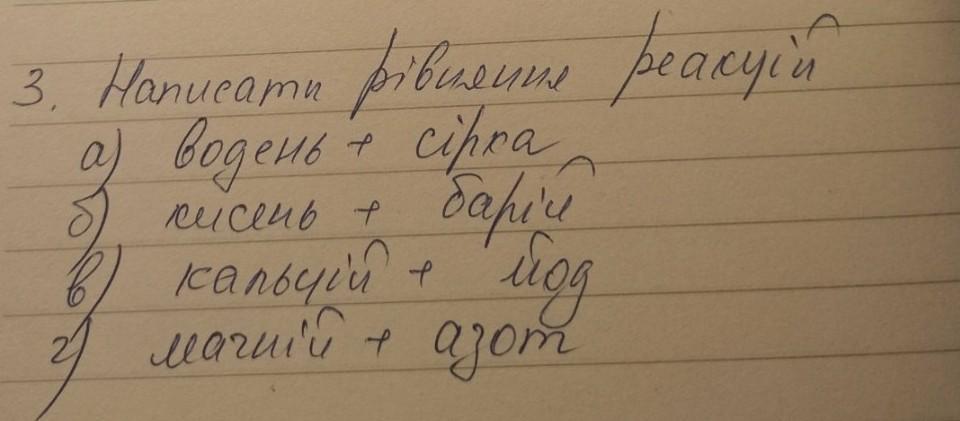 3. Написати рівняння реакцій
а) водень + сірка
б) кисень + барій
в) кальцій + йод
г) магній + азот